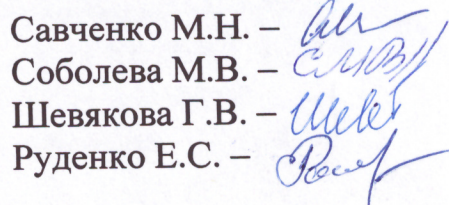 Савченко М.Н. –
Соболева М.В. –
Шевякова Г.В. –
Руденко Е.С. –